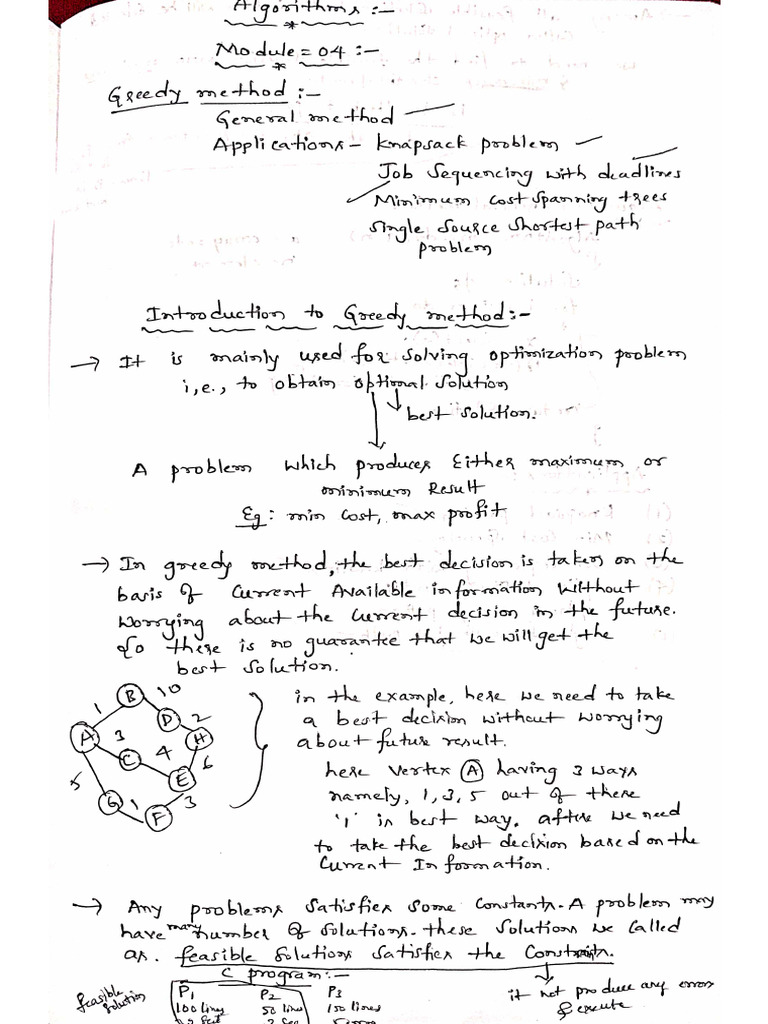 Algorithms :-
Module = 04 :-
Greedy method :-
General method
Applications - Knapsack problem
Job Sequencing with deadlines
Minimum cost spanning trees
Single source shortest path
problem
Introduction to Greedy method :-
→ It is mainly used for solving optimization problem
i,e., to obtain optional solution
best solution.
A problem which produces Either maximum or
minimum Result
Eg : min cost, max profit
→ In greedy method, the best decision is taken on the
basis of Current Available information without
worrying about the current decision in the future.
So there is no guarantee that we will get the
best solution.
in the example, here we need to take
a best decision without worrying
about future result.
here vertex A having 3 ways
namely, 1, 3, 5 out of these
'1' is best way. after we need
to take the best decision based on the
Current Information.
A B C D E F G H
1 10 3 2 4 6 5 1 3
→ Any problems satisfies some constants. A problem may
have many number of solutions. these solutions we called
as. feasible solutions satisfies the Constraints.
C program :-
it not produce any error
& execute
feasible
solution
P1 P2 P3
100 lines 50 lines 150 lines